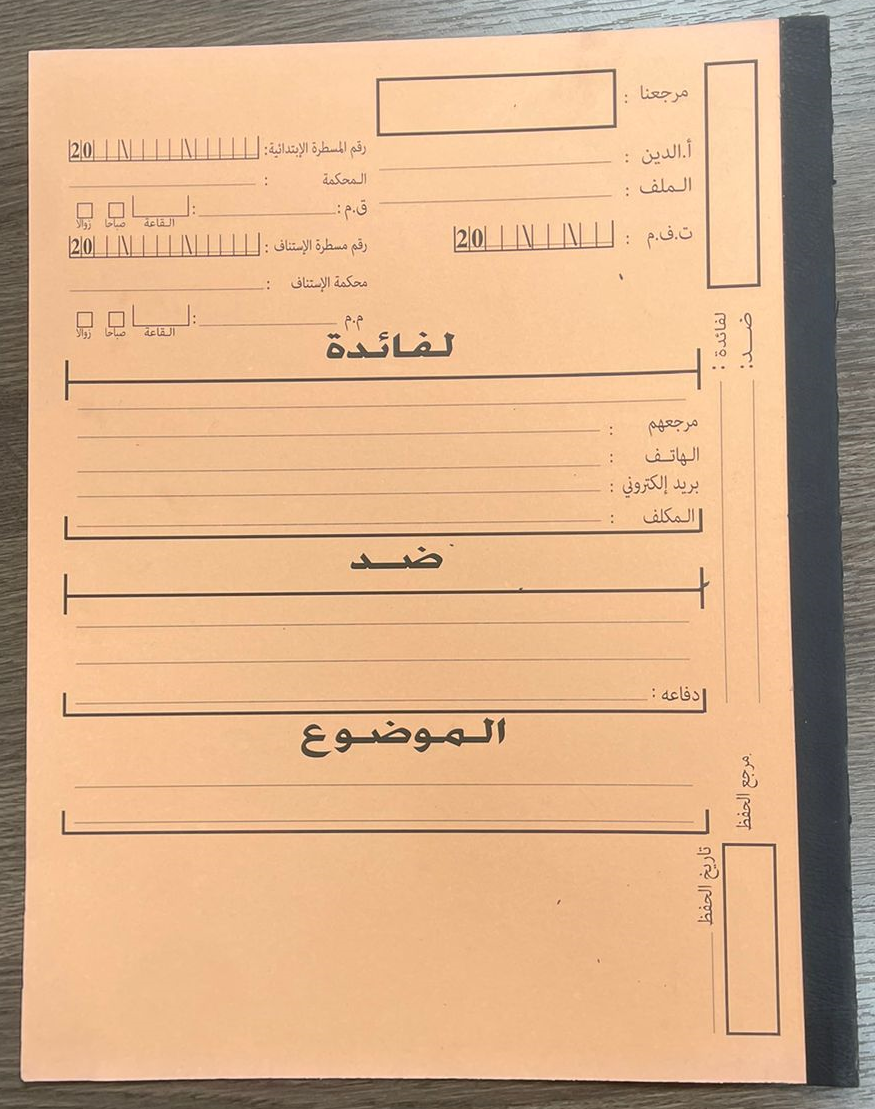 مرجعنا :
أ.الدين :
الملف :
ت.ف.م : 20
رقم المسطرة الإبتدائية: 20
المحكمة :
ق.م : :
القاعة صباحا زوالا
رقم مسطرة الإستناف : 20
محكمة الإستناف :
م.م :
القاعة صباحا زوالا
لفائدة
مرجعهم :
الهاتف :
بريد إلكتروني :
المكلف :
ضد
دفاعه :
الموضوع
لفائدة :
ضد:
مرجع الحفظ
تاريخ الحفظ